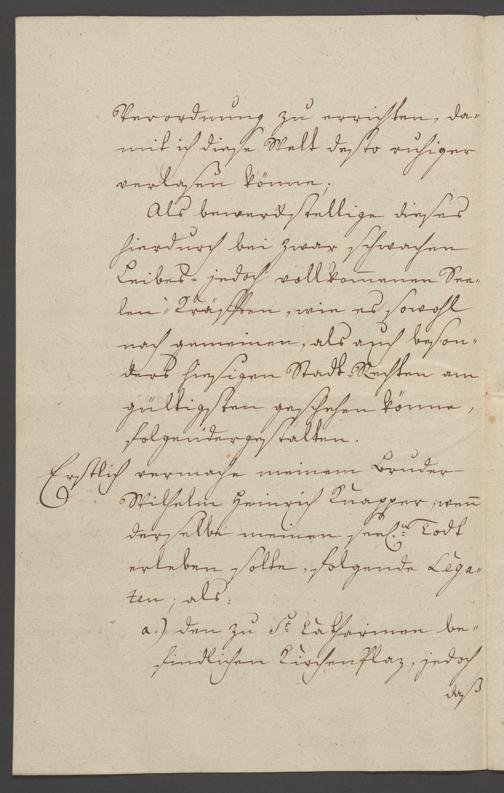 Verordnung zu errichten, da-
mit ich diese Welt desto ruhiger
verlasen könne,
Als bewerckstellige dieses
hierdurch bei zwar schwachen
Leibes- jedoch vollkommenen See-
len-Kräfften, wie es sowohl
nach gemeinen, als auch beson-
ders hiesigen Stadt-Rechten am
gültigsten geschehen könne,
folgendergestalten.
Erstlich vermache meinem Bruder
Wilhelm Heinrich Knapper, wenn
derselbe meinen seel. Todt
erleben solte, folgende Lega-
ten, als:
a.) den zu St. Catharinen be-
findlichen Kirchen Plaz, jedoch
daß